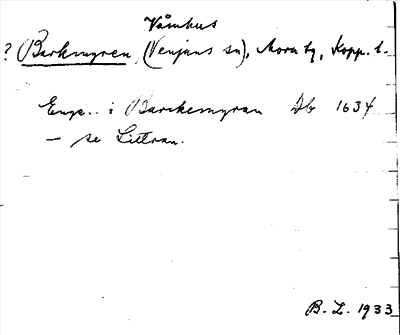 Våmhus
? Barkmyren (Venjans sn), Mora tg, Kopp. l.
Enge.. i Barckemyran Db 1634
– se Littran.
B. L. 1933